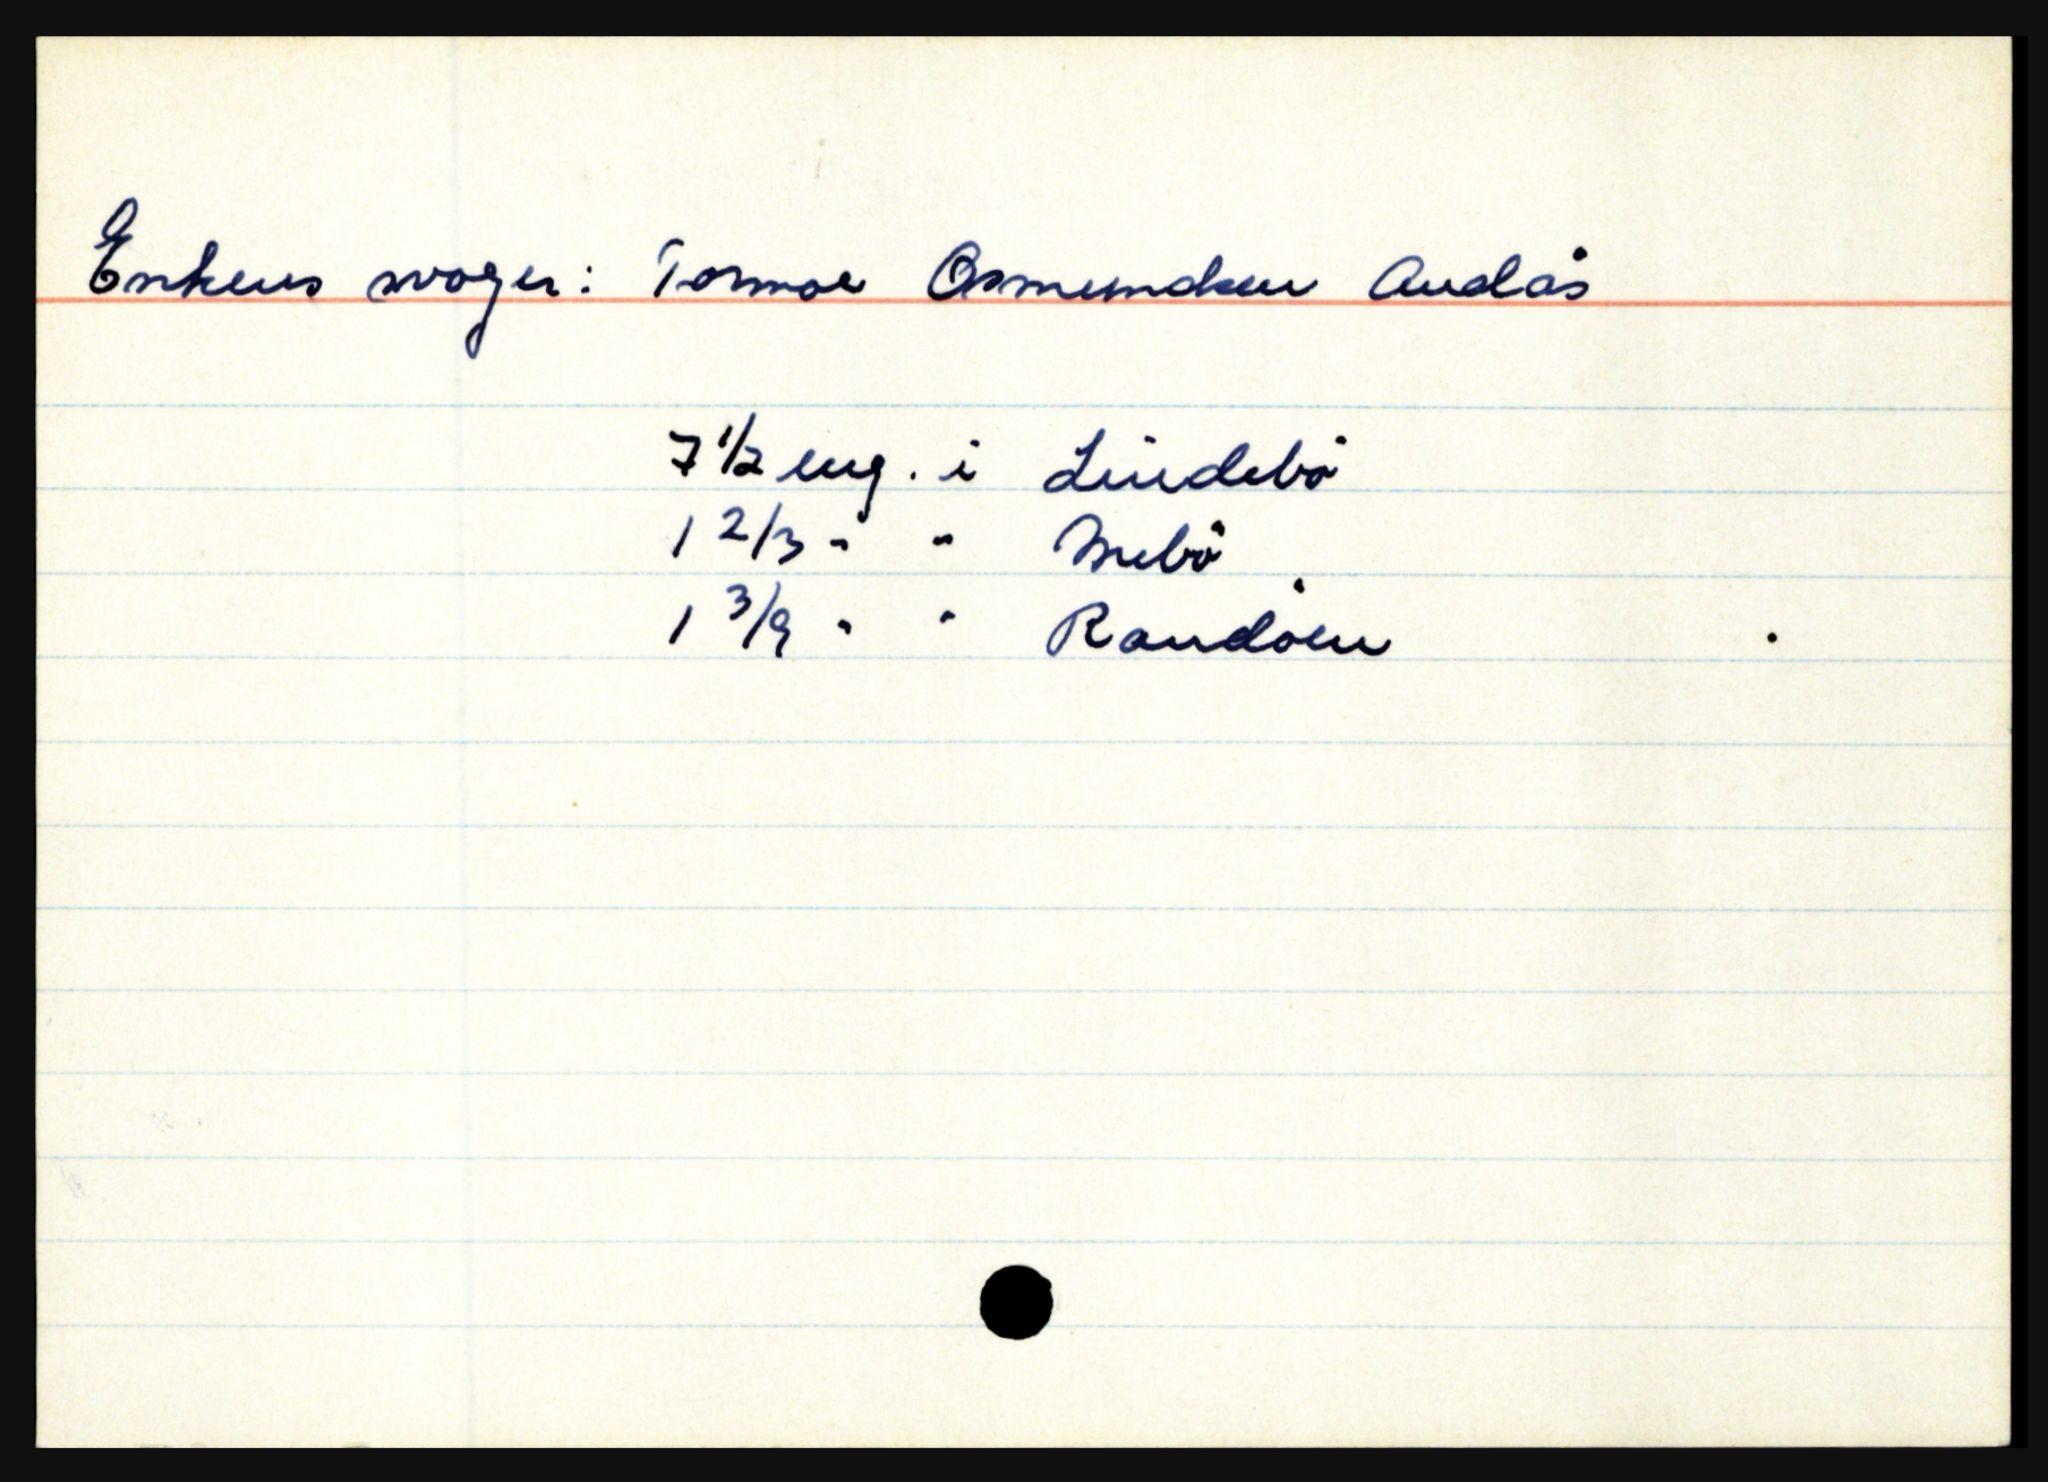 Enkens svoger: Tormoe Osmundsen Audås
7 1/2 eng. i Lindebö
1 2/3 " " Mebö
1 3/9 " " Randöen